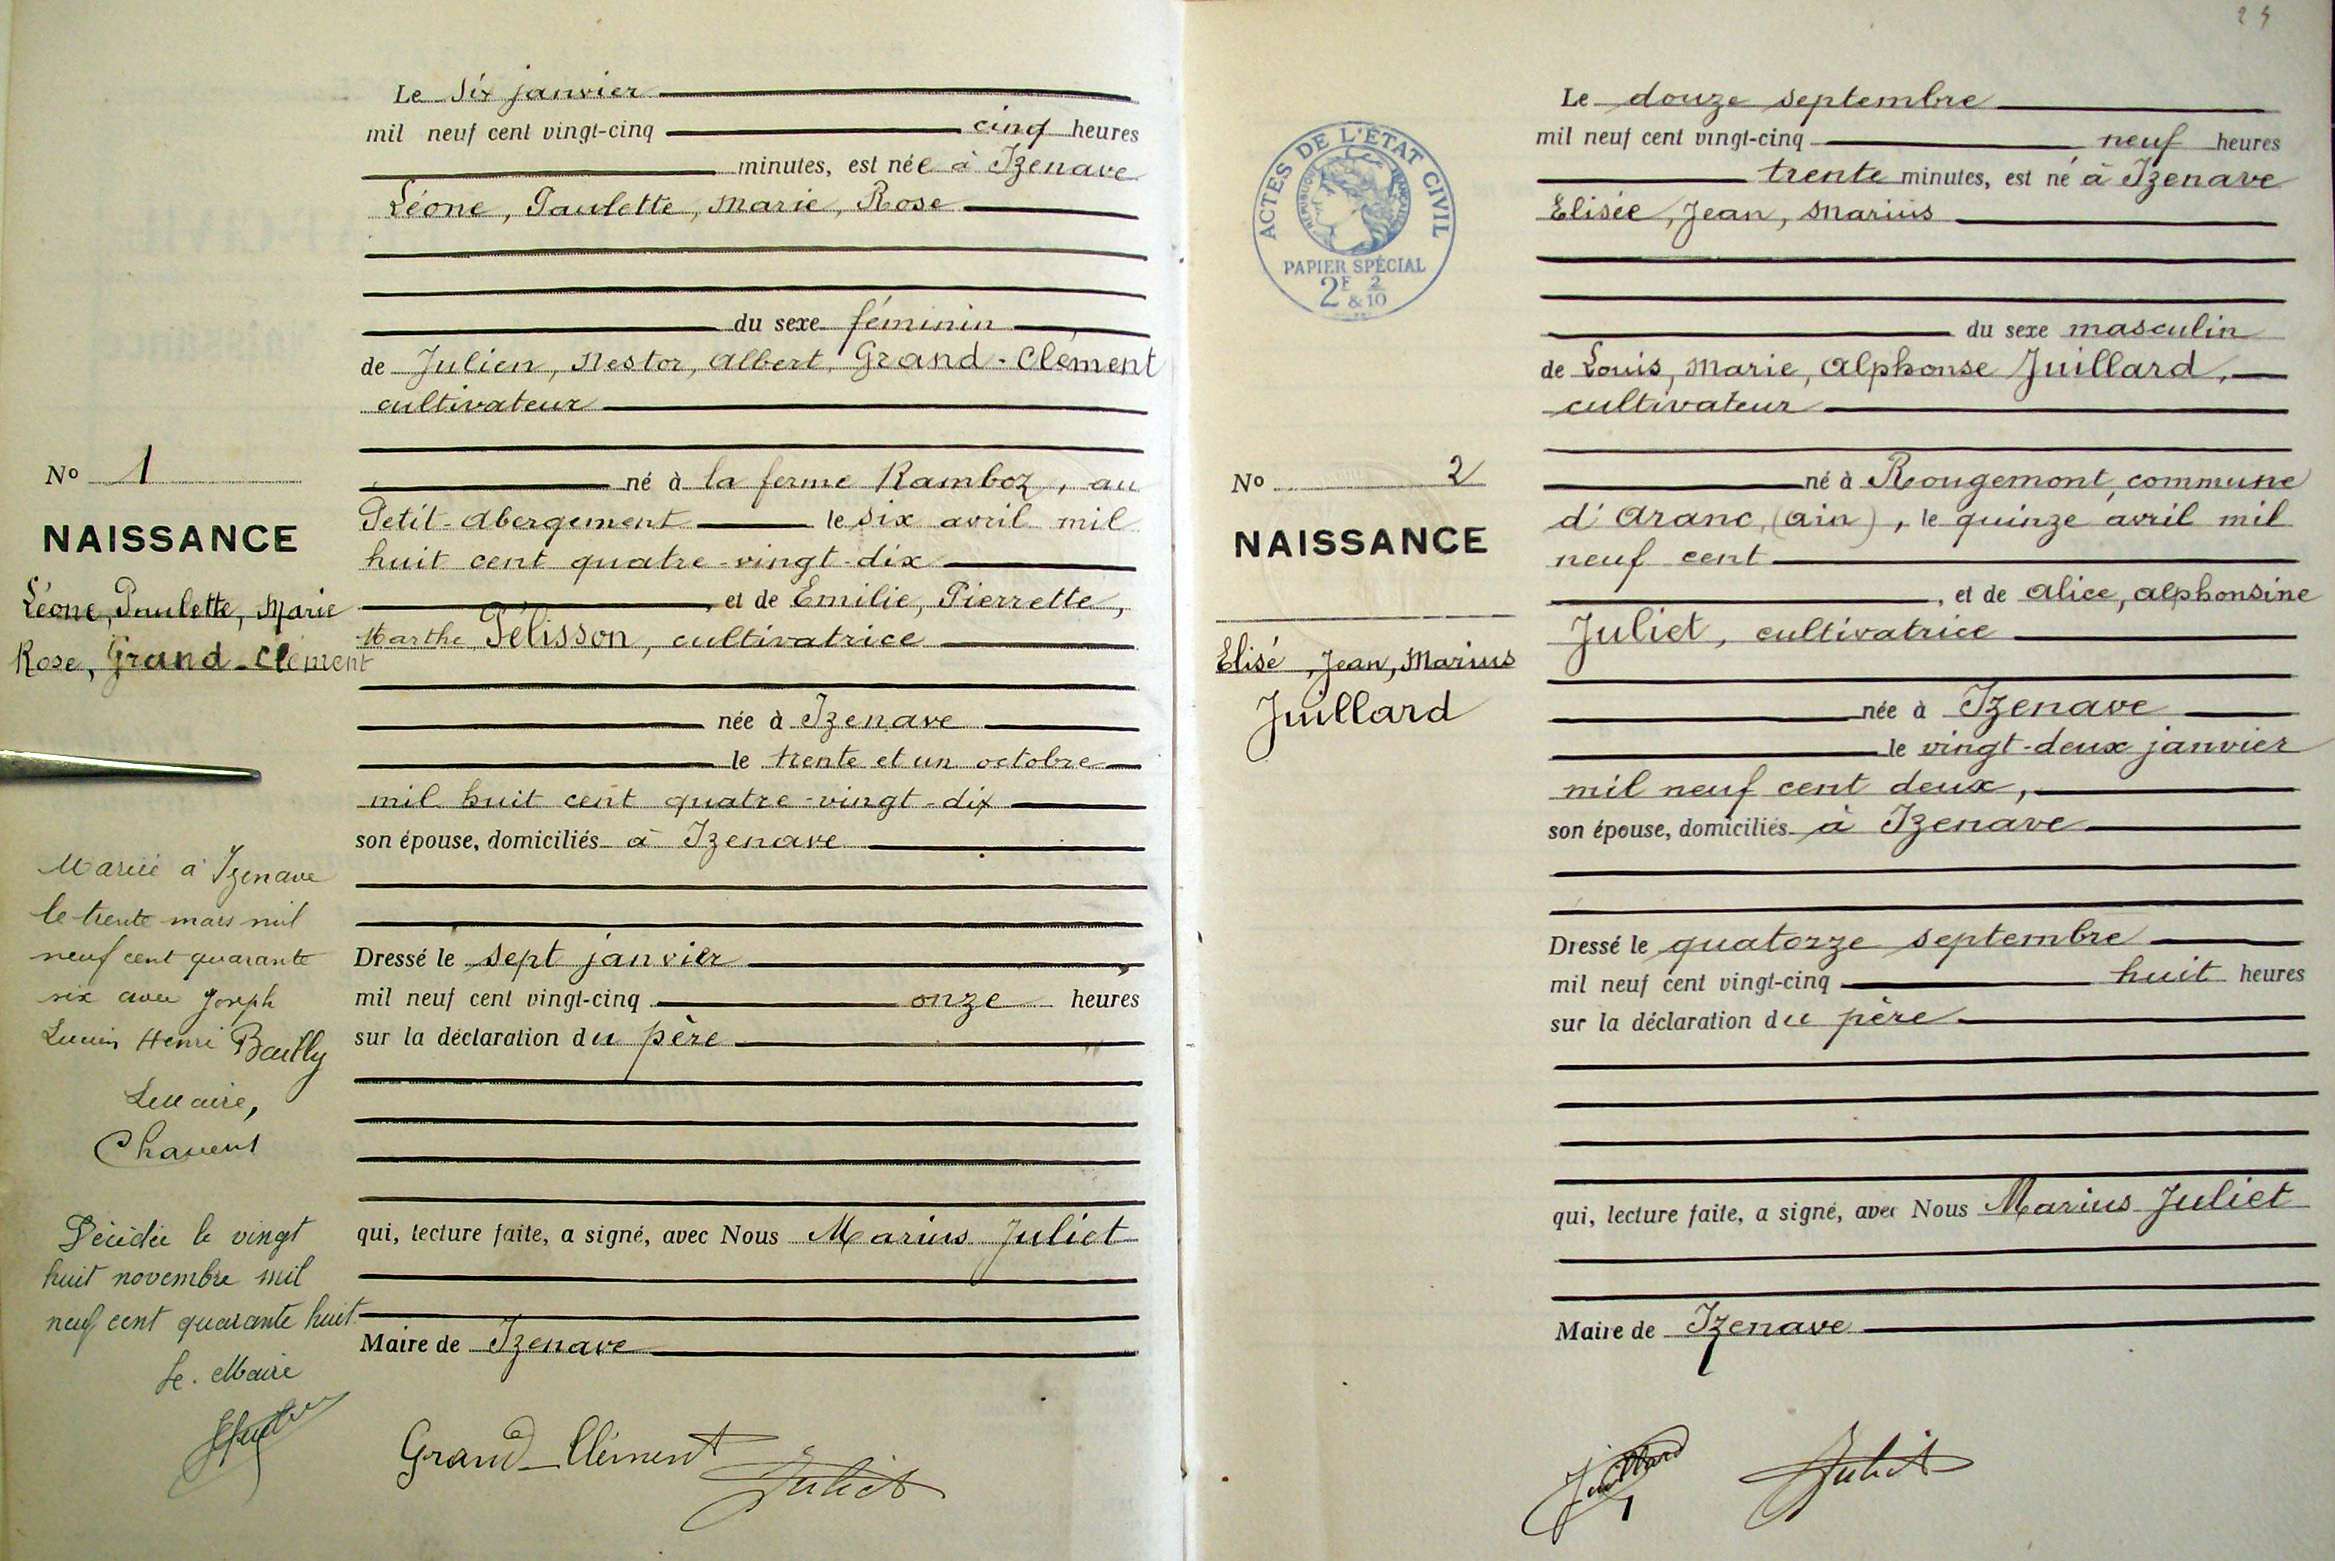 Le six janvier
mil neuf cent vingt-cinq cinq heures
minutes, est née à Izenave
Léone, Paulette, Marie, Rose
du sexe féminin
de Julien, Nestor, Albert, Grand-Clément
cultivateur
né à la ferme Ramboz, au
Petit-Abergement le six avril mil
huit cent quatre-vingt-dix
, et de Emilie, Pierrette,
Marthe Pélisson, cultivatrice
née à Izenave
le trente et un octobre
mil huit cent quatre-vingt-dix
son épouse, domiciliés à Izenave
Dressé le sept janvier
mil neuf cent vingt-cinq onze heures
sur la déclaration du père
qui, lecture faite, a signé, avec Nous Marius Juliet
Maire de Izenave
Grand-Clément Juliet
No 1
NAISSANCE
Léone, Paulette, Marie
Rose, Grand-Clément
Mariée à Izenave
le trente mars mil
neuf cent quarante
six avec Joseph
Lucien Henri Bailly
Le Maire,
Décédée le vingt
huit novembre mil
neuf cent quarante huit
Le Maire
24
ACTES DE L'ÉTAT CIVIL
PAPIER SPÉCIAL
2F 2
&10
Le douze septembre
mil neuf cent vingt-cinq neuf heures
trente minutes, est né à Izenave
Elisée, Jean, Marius
du sexe masculin
de Louis, Marie, Alphonse Juillard,
cultivateur
né à Rougemont, commune
d'Aranc, (Ain), le quinze avril mil
neuf cent
, et de Alice, Alphonsine
Juliet, cultivatrice
née à Izenave
le vingt-deux janvier
mil neuf cent deux,
son épouse, domiciliés à Izenave
Dressé le quatorze septembre
mil neuf cent vingt-cinq huit heures
sur la déclaration du père
qui, lecture faite, a signé, avec Nous Marius Juliet
Maire de Izenave
Juillard Juliet
No 2
NAISSANCE
Elisé, Jean, Marius
Juillard